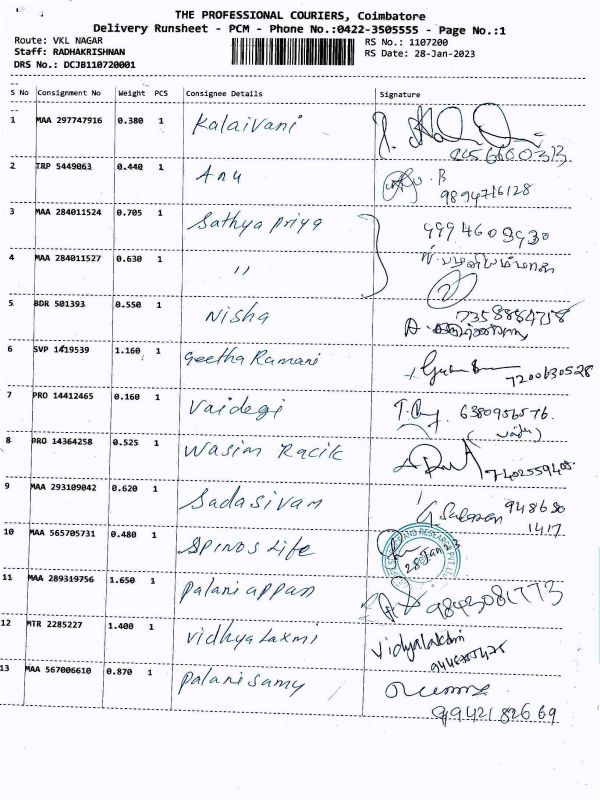 THE PROFESSIONAL COURIERS, Coimbatore
Delivery Runsheet - PCM - Phone No.:0422-3505555 - Page No.:1
Route: VKL NAGAR RS No.: 1107200
Staff: RADHAKRISHNAN RS Date: 28-Jan-2023
DRS No.: DCJB110720001
S No Consignment No Weight PCS Consignee Details Signature
1 MAA 297747916 0.380 1 Kalaivani
2 TRP 5449063 0.440 1 Anu
9894716128
3 MAA 284011524 0.705 1 Sathya priya 9994609930
4 MAA 284011527 0.630 1 "
5 BDR 501393 0.550 1 Nisha 7358884758
6 SVP 1419539 1.160 1 Geetha Ramani
7200630528
7 PRO 14412465 0.160 1 Vaidegi 6380956576
8 PRO 14364258 0.525 1 Wasim Racik
7402559405
9 MAA 293109042 0.620 1 Sadasivam 948680
1417
10 MAA 565705731 0.480 1 Spinos Life
28 Jan
11 MAA 289319756 1.650 1 Palaniappan 9843081773
12 MTR 2285227 1.400 1 Vidhyalaxmi Vidyalakshmi
13 MAA 567006610 0.870 1 Palanisamy
9942182669